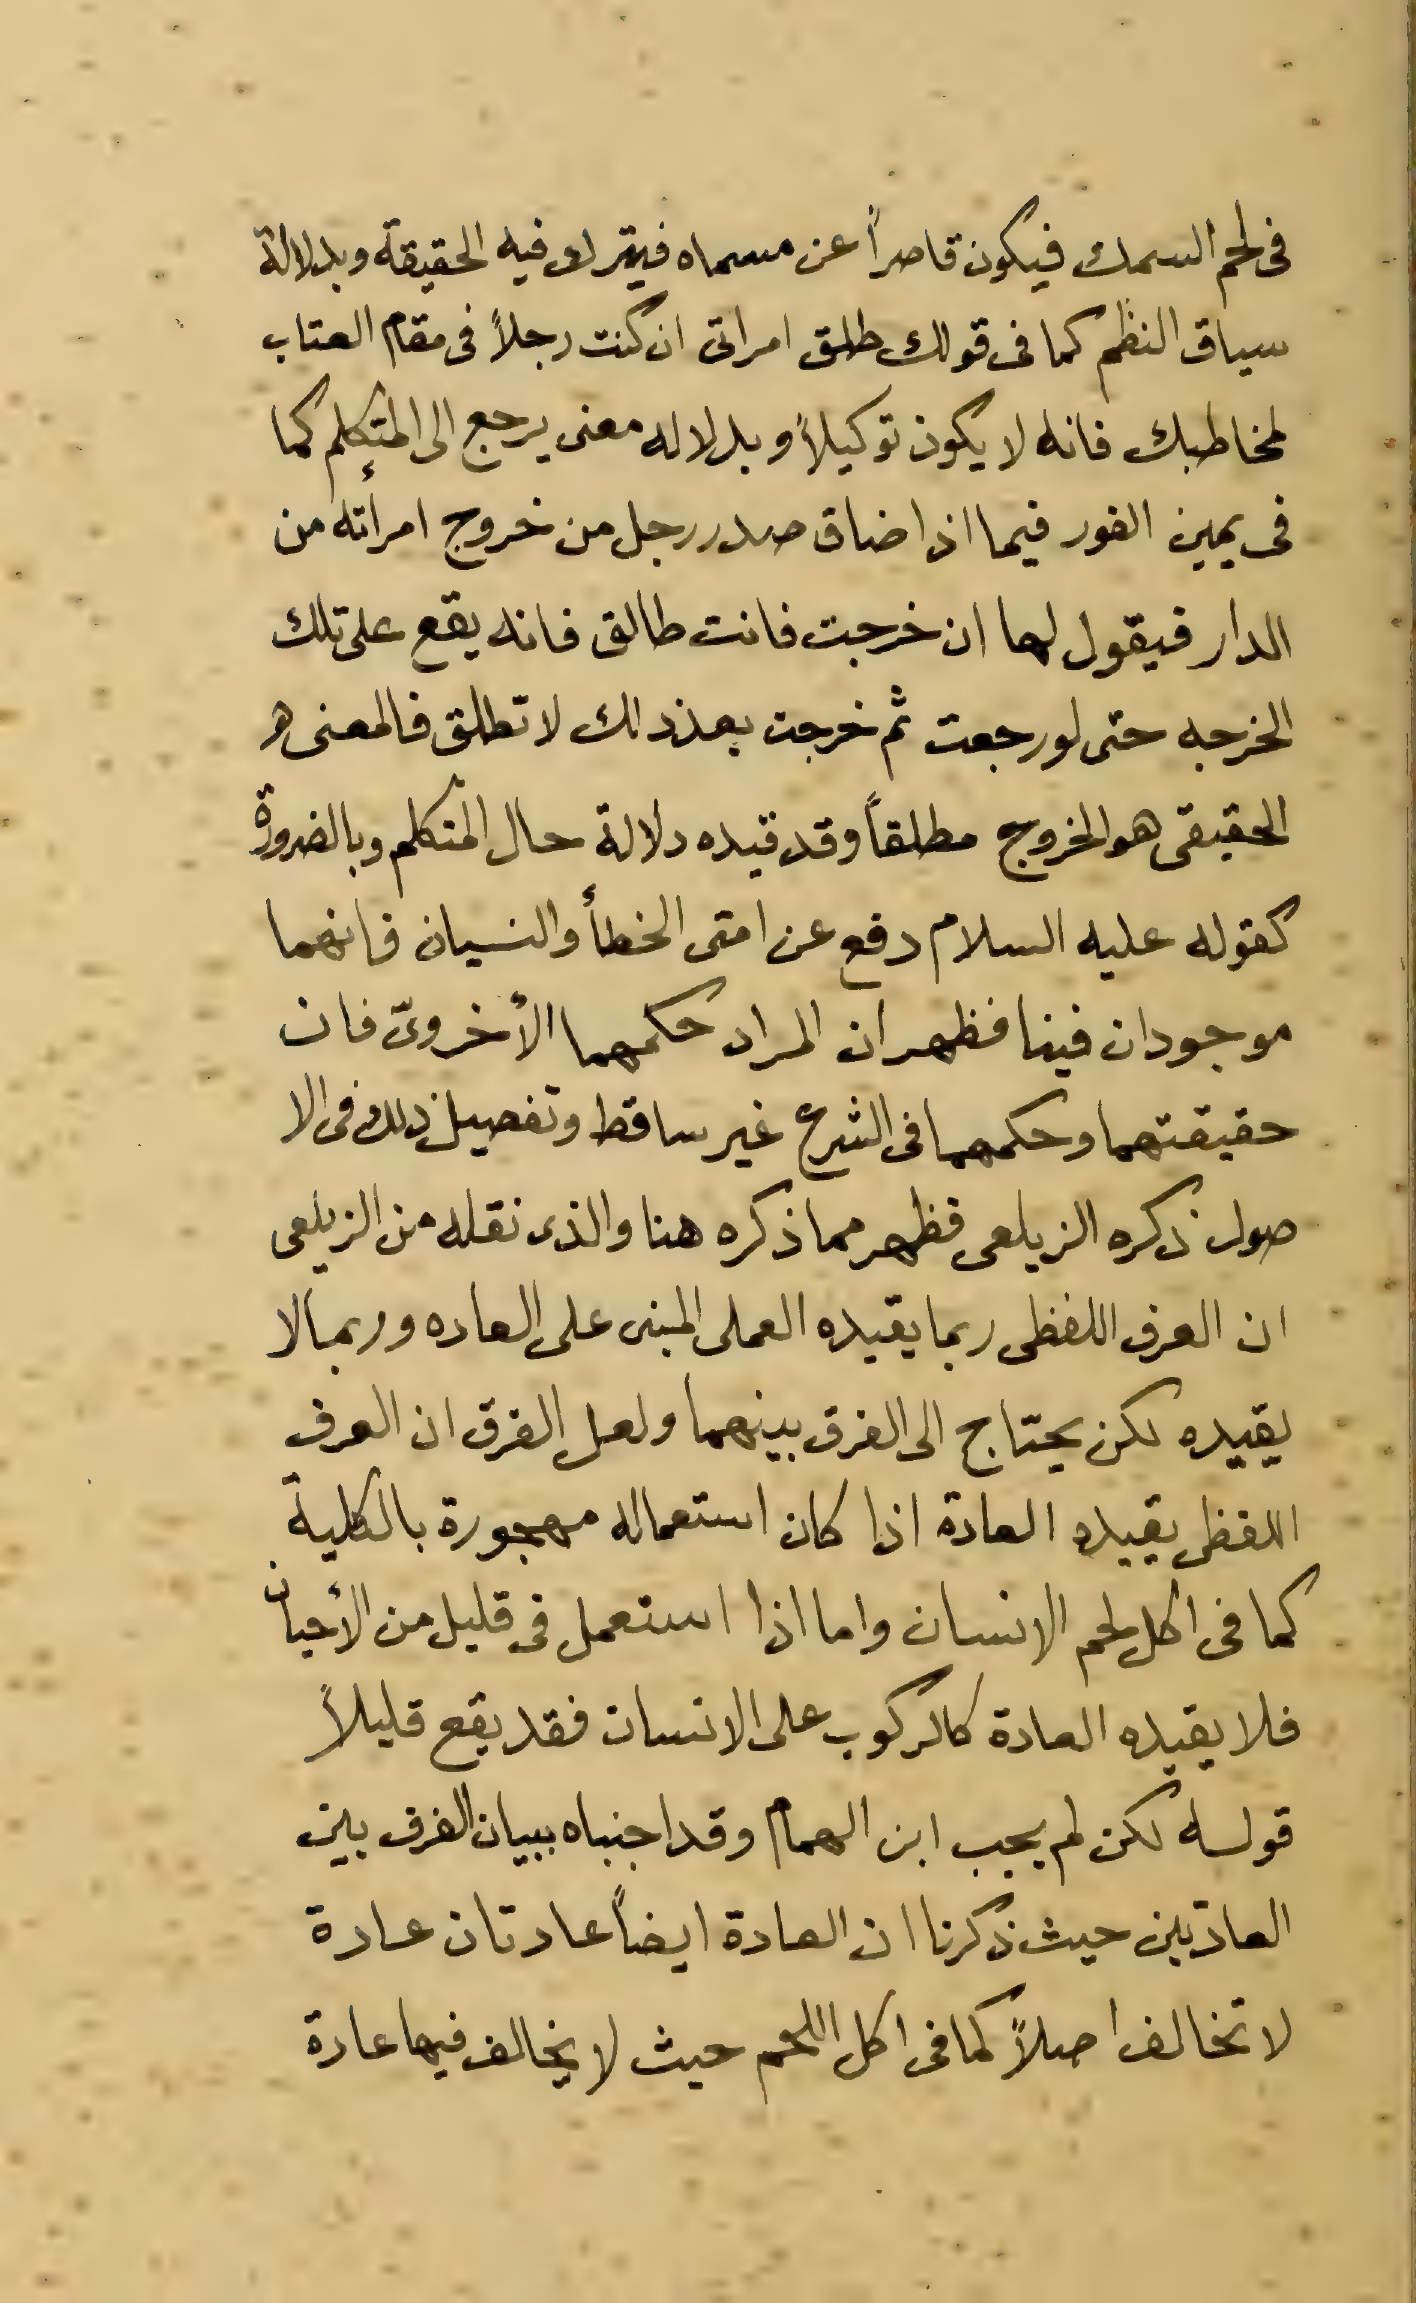 فى لحم السمك فيكون قاصراً عن مسماه فيترك فيه الحقيقة وبدلالة
سياق النظم كما فى قولك طلق امراتى ان كنت رجلاً فى مقام العتاب
لمخاطبك فانه لا يكون توكيلاً وبدلاله معنى يرجع الى المتكلم كما
فى يمين الفور فيما اذا ضاق صدر رجل من خروج امرأته من
الدار فيقول لها ان خرجت فانت طالق فانه يقع على تلك
الخرجه حتى لو رجعت ثم خرجت بعد ذالك لا تطلق فالمعنى هو
الحقيقى هو الخروج مطلقاً وقد قيده دلالة حال المتكلم وبالضرورة
كقوله عليه السلام رفع عن امتى الخطأ والنسيان فانهما
موجودان فينا فظهر ان المراد حكمهما الأخروىّ فان
حقيقتهما وحكمهما فى الشرع غير ساقط وتفصيل ذلك فى الا
صول ذكره الزيلعى فظهر مما ذكره هنا والذى نقله من الزيلعى
ان العرف اللفظى ربما يقيده العملى المبنى على العاده وربما لا
يقيده لكن يحتاج الى الفرق بينهما ولعل الفرق ان العرف
اللفظى يقيده العادة اذا كان استعماله مهجورة بالكلية
كما فى اكل لحم الانسان واما اذا استعمل فى قليل من الأحيان
فلا يقيده العادة كالركوب على الانسان فقد يقع قليلاً
قوله لكن لم يجب ابن الهمام وقد اجبناه ببيان الفرق بين
العادتين حيث ذكرنا ان العادة ايضاً عادتان عادة
لا تخالف اصلاً كما فى اكل اللحم حيث لا يخالف فيها عادة